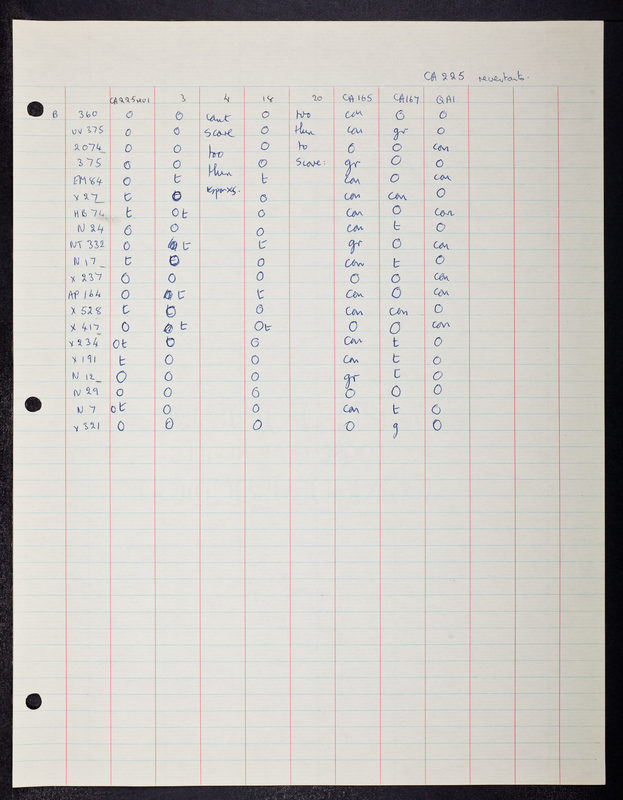 CA 225 revertants.
CA225 rev1 3 4 18 20 CA165 CA167 QA1
B 360 0 0 cant 0 too con 0 0
UV 375 0 0 score 0 thin con gr 0
2074 0 0 too 0 to 0 0 con
375 0 0 0 score: gr 0 0
EM84 0 t thin t con 0 con
X 27 t 0 0 con con 0
HB 74 t 0t 0 con 0 con
N 24 0 0 0 con t 0
NT 332 0 t t gr 0 con
N 17 t 0 0 con t 0
X 237 0 0 0 0 0 con
AP 164 0 t t con 0 con
X 528 t 0 0 con con 0
X 417 0 t 0t 0 0 con
X 234 0t t 0 con t 0
X 191 t 0 0 con t 0
N 12 0 0 0 gr t 0
N 29 0 0 0 0 0 0
N 7 0t 0 0 con t 0
X 321 0 0 0 0 g 0